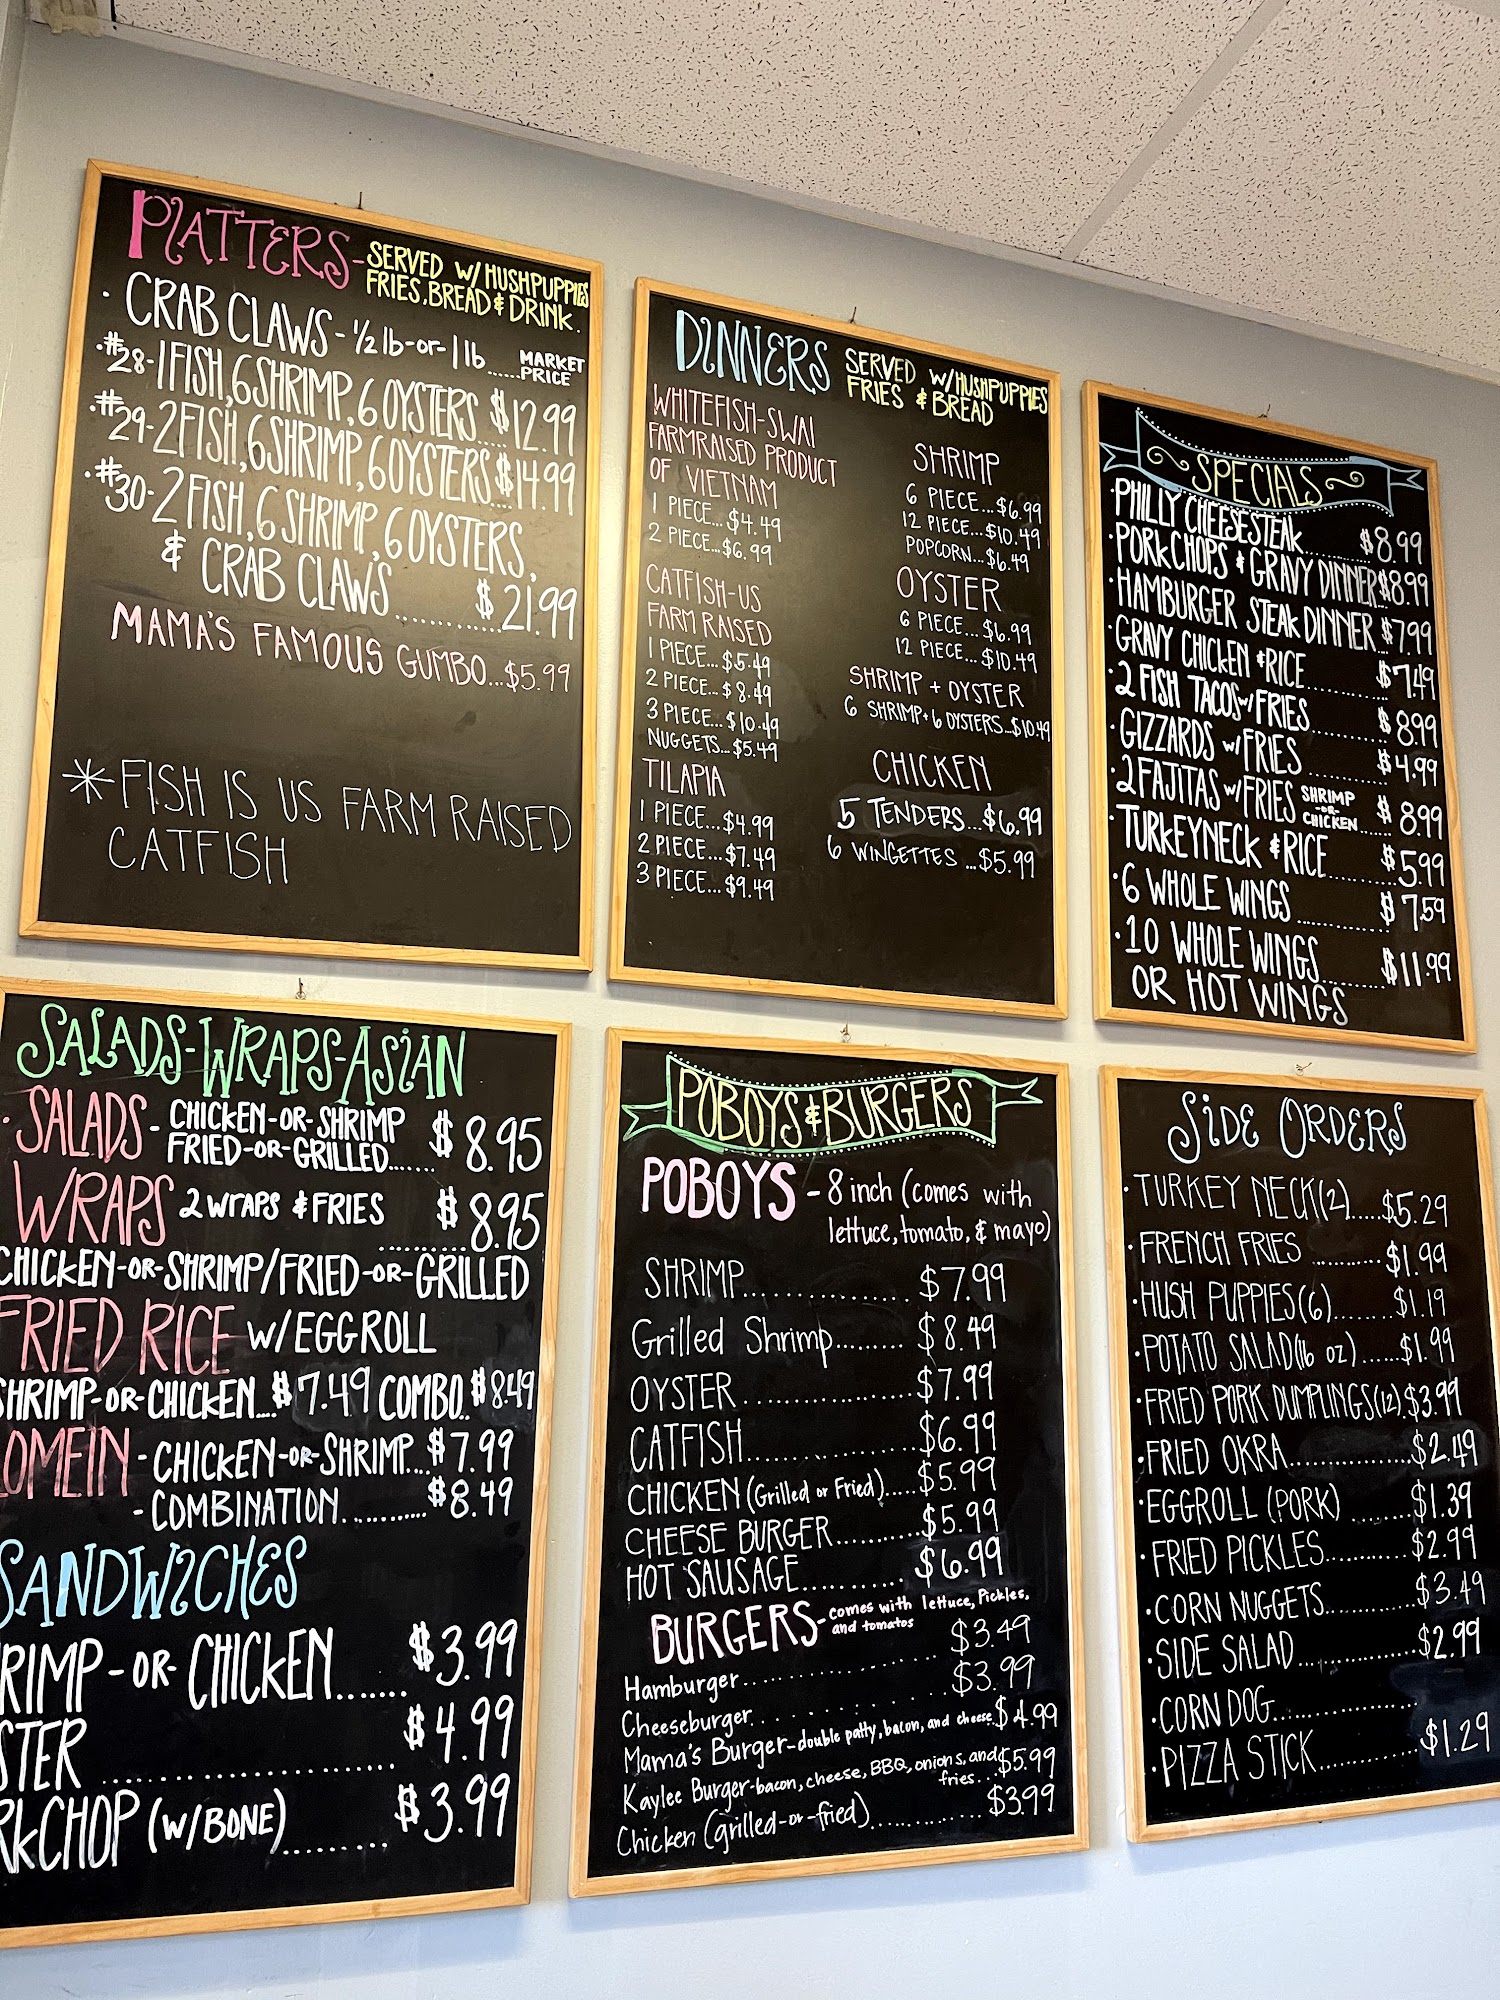 PLATTERS - SERVED W/ HUSHPUPPIES
FRIES, BREAD & DRINK.
· CRAB CLAWS - 1/2 lb -or- 1 lb ...... MARKET PRICE
· #28 - 1 FISH, 6 SHRIMP, 6 OYSTERS $12.99
· #29 - 2 FISH, 6 SHRIMP, 6 OYSTERS $14.99
· #30 - 2 FISH, 6 SHRIMP, 6 OYSTERS,
& CRAB CLAWS ............. $21.99
MAMA'S FAMOUS GUMBO...$5.99
* FISH IS US FARM RAISED
CATFISH
DINNERS SERVED W/HUSHPUPPIES
FRIES & BREAD
WHITEFISH-SWAI
FARMRAISED PRODUCT
OF VIETNAM
1 PIECE...$4.49
2 PIECE...$6.99
CATFISH-US
FARM RAISED
1 PIECE...$5.49
2 PIECE...$8.49
3 PIECE...$10.49
NUGGETS...$5.49
TILAPIA
1 PIECE...$4.99
2 PIECE...$7.49
3 PIECE...$9.49
SHRIMP
6 PIECE...$6.99
12 PIECE...$10.49
POPCORN...$6.49
OYSTER
6 PIECE...$6.99
12 PIECE...$10.49
SHRIMP + OYSTER
6 SHRIMP + 6 OYSTERS...$10.49
CHICKEN
5 TENDERS...$6.99
6 WINGETTES...$5.99
SPECIALS
· PHILLY CHEESESTEAK........ $8.99
· PORKCHOPS & GRAVY DINNER $8.99
· HAMBURGER STEAK DINNER $7.99
· GRAVY CHICKEN & RICE ........ $7.49
· 2 FISH TACOS w/ FRIES ........ $8.99
· GIZZARDS w/ FRIES ........ $4.99
· 2 FAJITAS w/ FRIES SHRIMP -OR- CHICKEN ..... $8.99
· TURKEYNECK & RICE ........ $5.99
· 6 WHOLE WINGS ........ $7.59
· 10 WHOLE WINGS ........ $11.99
OR HOT WINGS
SALADS-WRAPS-ASIAN
· SALADS - CHICKEN-OR-SHRIMP
FRIED-OR-GRILLED....... $8.95
WRAPS 2 WRAPS & FRIES ......... $8.95
CHICKEN-OR-SHRIMP/FRIED-OR-GRILLED
FRIED RICE W/EGGROLL
SHRIMP-OR-CHICKEN....$7.49 COMBO..$8.49
LOMEIN - CHICKEN-OR-SHRIMP....$7.99
- COMBINATION............ $8.49
SANDWICHES
RIMP-OR-CHICKEN....... $3.99
STER ..................... $4.99
RKCHOP (W/BONE) ....... $3.99
POBOYS & BURGERS
POBOYS - 8 inch (comes with
lettuce, tomato, & mayo)
SHRIMP.................. $7.99
Grilled Shrimp......... $8.49
OYSTER.................. $7.99
CATFISH................. $6.99
CHICKEN (Grilled or Fried)..... $5.99
CHEESE BURGER.......... $5.99
HOT SAUSAGE........... $6.99
BURGERS - comes with lettuce, Pickles,
and tomatos
Hamburger.................. $3.49
Cheeseburger............... $3.99
Mama's Burger - double patty, bacon, and cheese $4.99
Kaylee Burger - bacon, cheese, BBQ, onions, and fries... $5.99
Chicken (grilled-or-fried)............. $3.99
SIDE ORDERS
· TURKEY NECK (2).....$5.29
· FRENCH FRIES ..........$1.99
· HUSH PUPPIES (6).......$1.19
· POTATO SALAD (16 oz)......$1.99
· FRIED PORK DUMPLINGS (12).$3.99
· FRIED OKRA...............$2.49
· EGGROLL (PORK) ........$1.39
· FRIED PICKLES............$2.99
· CORN NUGGETS............$3.49
· SIDE SALAD...............$2.99
· CORN DOG..................
· PIZZA STICK.............$1.29